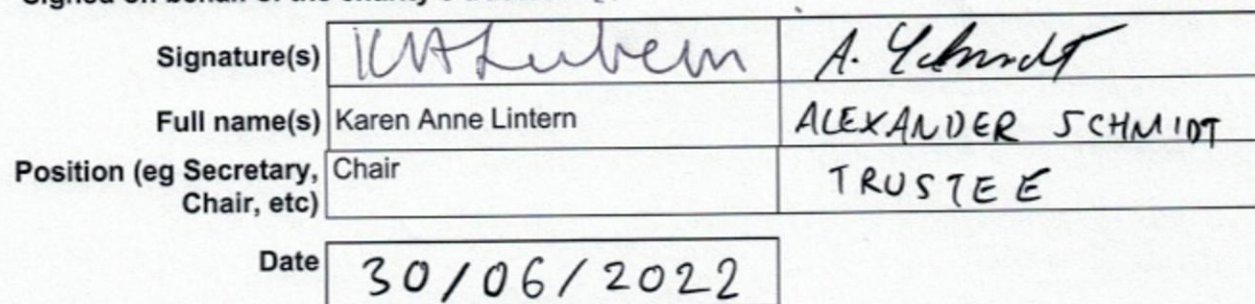 Signature(s) KA Lintern A. Schmidt
Full name(s) Karen Anne Lintern ALEXANDER SCHMIDT
Position (eg Secretary, Chair TRUSTEE
Chair, etc)
Date 30/06/2022